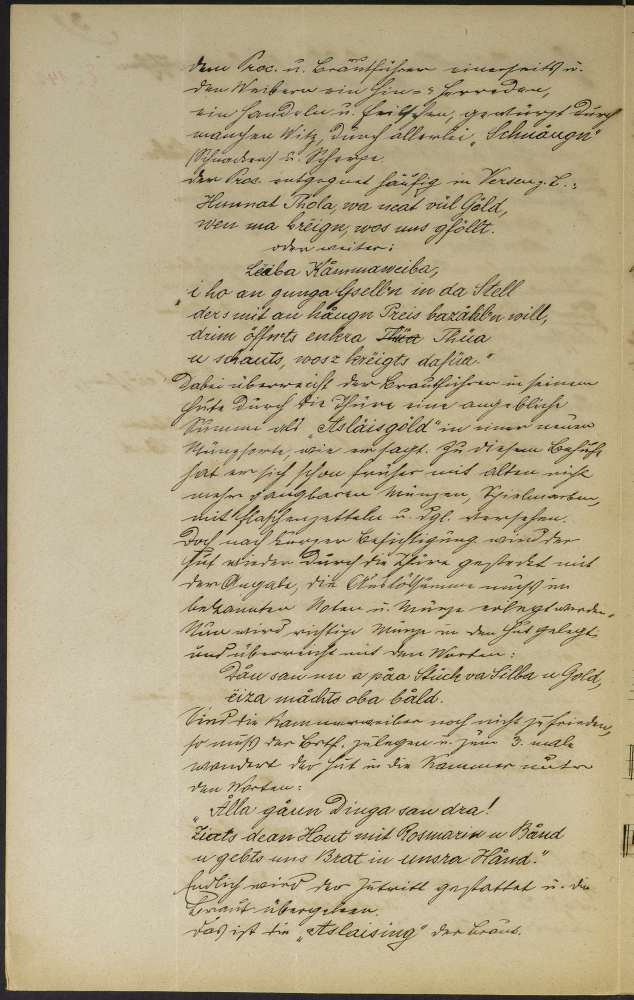 dem Proc. u. Brautführer einerseits u.
den Weibern ein Hin- u. Herreden,
ein Handeln u. Feilschen, gewürzt durch
manchen Witz, durch allerlei „Schnàugn“
(Schnacken) u. Scherze.
Der Proc. entgegnet häufig in Versen z. B.:
Hunnat Thola, wa neat vül Göld,
wen ma kreign, wos uns gföllt.
oder weiter:
Leiba Kåmmaweiba,
„i ho an gunga Gselln in da Stell
ders mit an håugn Preis bazåhln will,
drim öffnts enkra Thüa
u schauts, wosz kreigts dafüa.“
Dabei überreicht der Brautführer in seinem
Hute durch die Thüre eine angebliche
Summe als „Aslåisgöld“ in einer neuen
Münzsorte, wie er sagt. Zu diesem Behufe
hat er sich schon früher mit alten nicht
mehr gangbaren Münzen, Spielmarken,
mit Flaschenzetteln u. dgl. versehen.
Doch nach kurzer Besichtigung wird der
Hut wieder durch die Thüre gesteckt mit
der Angabe, die Auslössumme muß in
bekannten Noten u. Münze erlegt werden.
Nun wird richtige Münze in den Hut gelegt
und überreicht mit den Worten:
Dåu san nu a påa Stück va Silba u Gold,
ëiza måchts oba båld.
Sind die Kammerweiber noch nicht zufrieden,
so muß der Brtf. zulegen u. zum 3. male
wandert der Hut in die Kammer unter
den Worten:
„Ålla gåren Dinga san dra!
Ziats dean Hout mit Rosmarin u Bånd
u gebts uns Brat in unsra Hånd.“
Endlich wird der Zutritt gestattet u. die
Braut übergeben.
Das ist die „Aslaising“ der Braut.